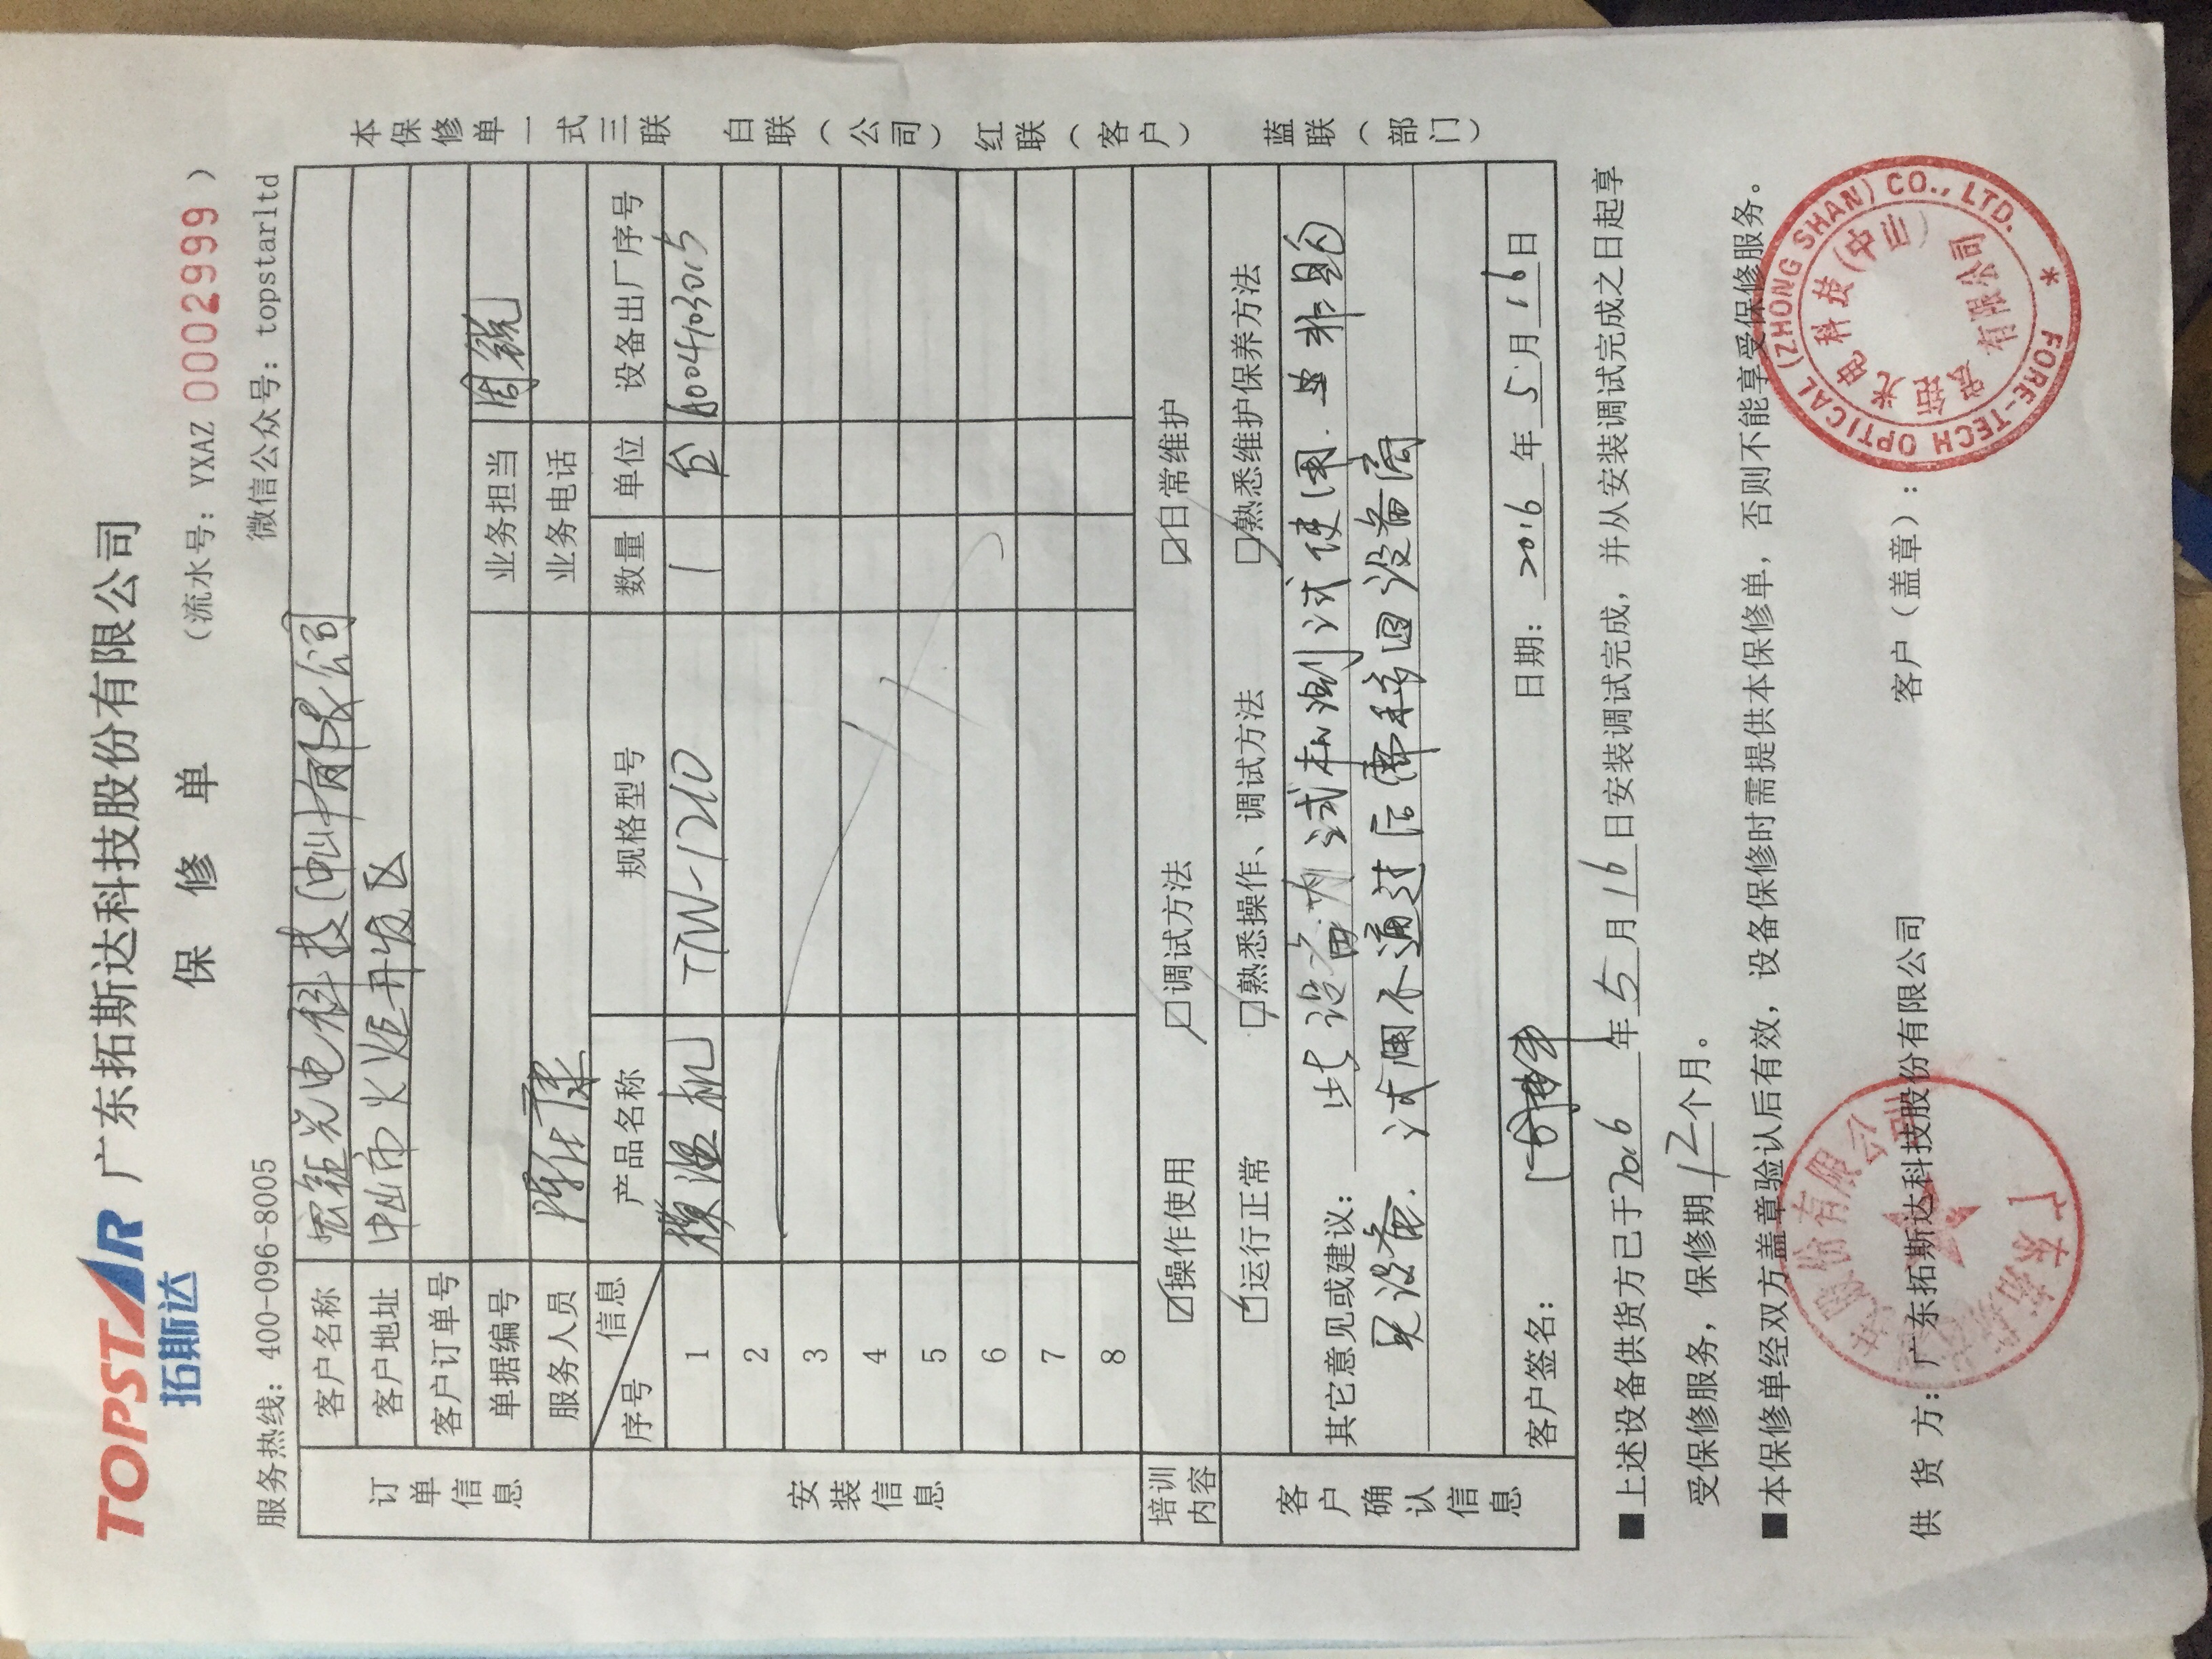 TOPSTAR 广东拓斯达科技股份有限公司
拓斯达
保 修 单 (流水号: YXAZ 0002999)
服务热线: 400-096-8005 微信公众号: topstarltd
订单信息
客户名称 光电科技(中山)有限公司
客户地址 中山市火炬开发区
客户订单号
单据编号 业务担当 周锐
服务人员 业务电话
安装信息
序号 信息 产品名称 规格型号 数量 单位 设备出厂序号
1 模温机 TTW-1210 1 台 A004103015
2
3
4
5
6
7
8
培训内容 ☑操作使用 ☑调试方法 ☑日常维护
客户确认信息
☑运行正常 ☑熟悉操作、调试方法 ☑熟悉维护保养方法
其它意见或建议: 此设备为试机测试使用.并非购
买设备.试用不通过后需移回设备商
客户签名: 日期: 2016 年 5 月 16 日
■上述设备供货方已于 2016 年 5 月 16 日安装调试完成, 并从安装调试完成之日起享
受保修服务, 保修期 12 个月。
■本保修单经双方盖章验认后有效, 设备保修时需提供本保修单, 否则不能享受保修服务。
供 货 方: 广东拓斯达科技股份有限公司 客户(盖章):
FORE-TECH OPTICAL (ZHONG SHAN) CO., LTD. *
光电科技(中山)
有限公司
本保修单一式三联 白联(公司) 红联(客户) 蓝联(部门)